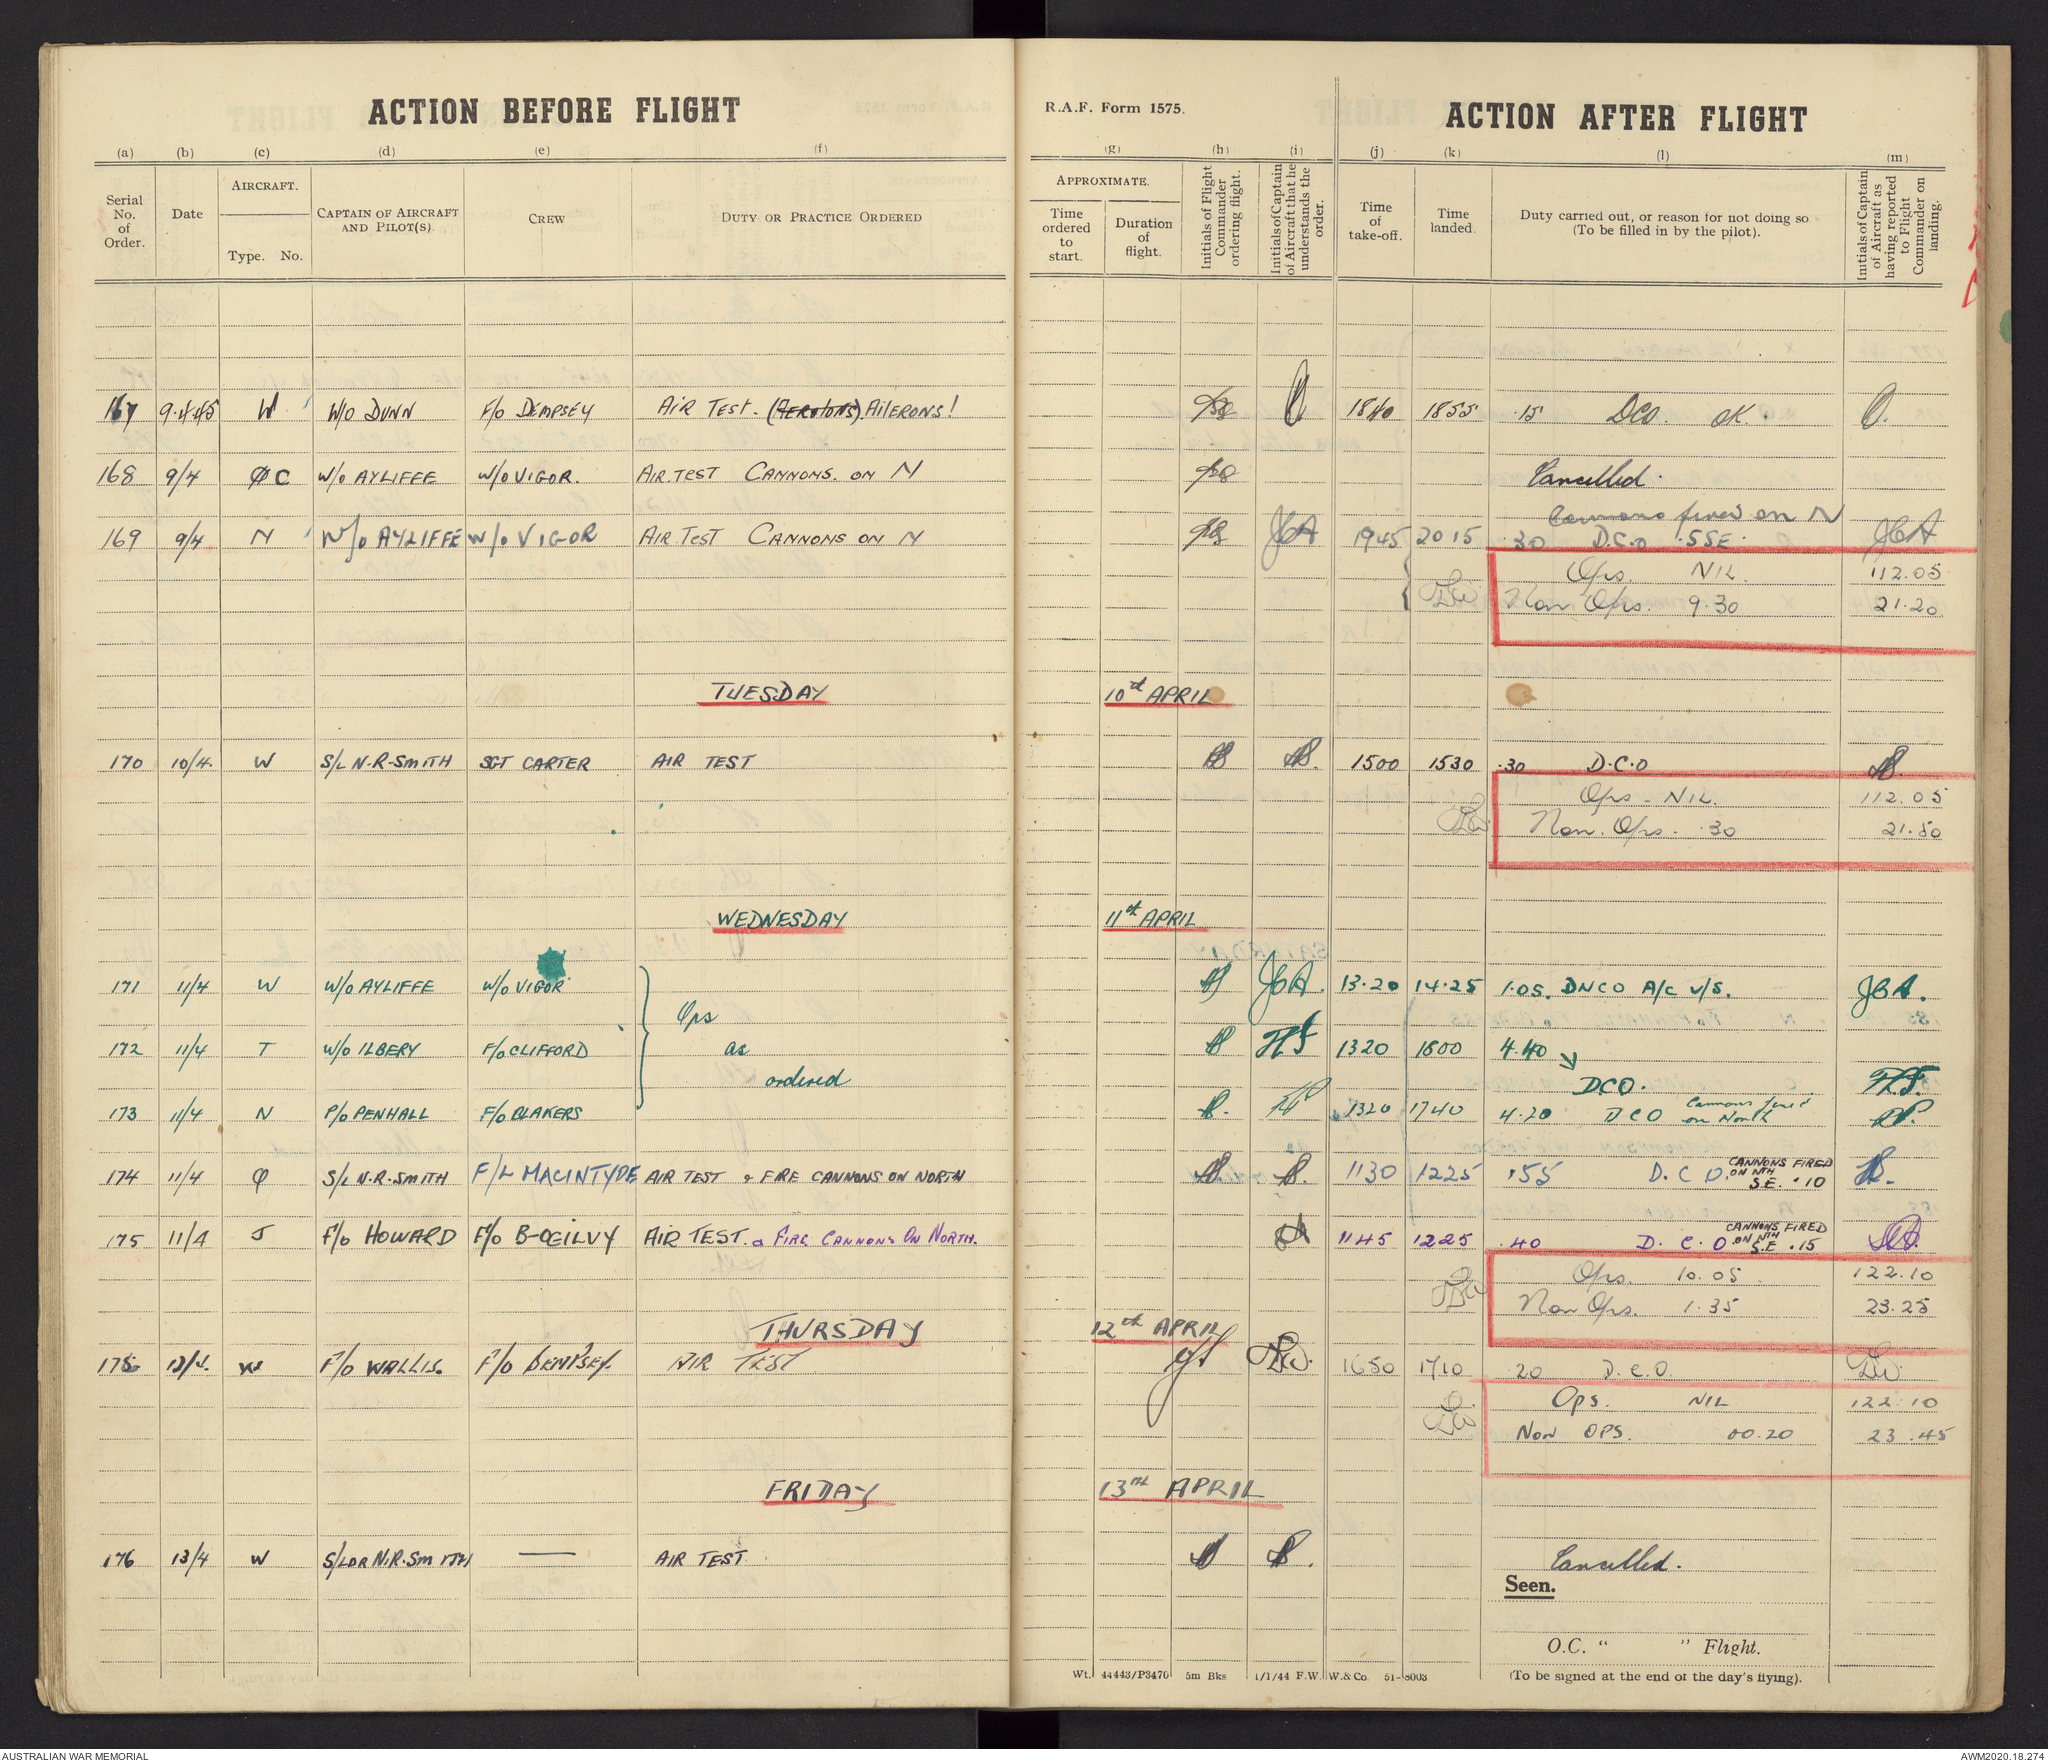 ACTION BEFORE FLIGHT
R.A.F. Form 1575.
ACTION AFTER FLIGHT
(a) (b) (c) (d) (e) (f) (g) (h) (i) (j) (k) (l) (m)
Serial No. of Order.
Date
AIRCRAFT.
Type. No.
CAPTAIN OF AIRCRAFT AND PILOT(S).
CREW
DUTY OR PRACTICE ORDERED
APPROXIMATE.
Time ordered to start.
Duration of flight.
Initials of Flight Commander ordering flight.
Initials of Captain of Aircraft that he understands the order.
Time of take-off.
Time landed.
Duty carried out, or reason for not doing so (To be filled in by the pilot).
Initials of Captain of Aircraft as having reported to Flight Commander on landing.
167 9.4.45 W W/O DUNN F/O DEMPSEY AIR TEST. AILERONS! 1840 1855 .15 DCO. OK.
168 9/4 C W/O AYLIFFE W/O VIGOR. AIR TEST CANNONS. ON N Cancelled.
Cannons fired on N
169 9/4 N W/O AYLIFFE W/O VIGOR AIR TEST CANNONS ON N JCA 1945 2015 .30 D.C.O .SSE. JCA
Ops. NIL. 112.05
Non Ops. 9.30 21.20
TUESDAY 10th APRIL
170 10/4. W S/L N.R.SMITH SGT CARTER AIR TEST 1500 1530 .30 D.C.O
Ops - NIL. 112.05
Non. Ops. .30 21.50
WEDNESDAY 11th APRIL
171 11/4 W W/O AYLIFFE W/O VIGOR JCA. 13.20 14.25 1.05. DNCO A/C U/S. JCA.
Ops
172 11/4 T W/O ILBERY F/O CLIFFORD as 1320 1800 4.40
ordered DCO.
173 11/4 N P/O PENHALL F/O BLAKERS 1320 1740 4.20 DCO Cannons fired on North
174 11/4 Q S/L N.R.SMITH F/L MACINTYRE AIR TEST & FIRE CANNONS ON NORTH 1130 1225 .55 D.C.O. CANNONS FIRED ON NTH S.E. .10
175 11/4 J F/O HOWARD F/O B-OGILVY AIR TEST. & FIRE CANNONS ON NORTH. 1145 1225 .40 D.C.O CANNONS FIRED ON NTH S.E .15
Ops. 10.05 122.10
Non Ops. 1.35 23.25
THURSDAY 12th APRIL
175 12/4. W F/O WALLIS. F/O DEMPSEY. AIR TEST 1650 1710 .20 D.C.O.
Ops. NIL 122.10
NON OPS. 00.20 23.45
FRIDAY 13TH APRIL
176 13/4 W S/LDR N.R.SMITH — AIR TEST Cancelled.
Seen.
O.C. “ ” Flight.
Wt. 44443/P3470 5m Bks 1/1/44 F.W. W.& Co. 51-8003
(To be signed at the end of the day's flying).
AUSTRALIAN WAR MEMORIAL
AWM2020.18.274